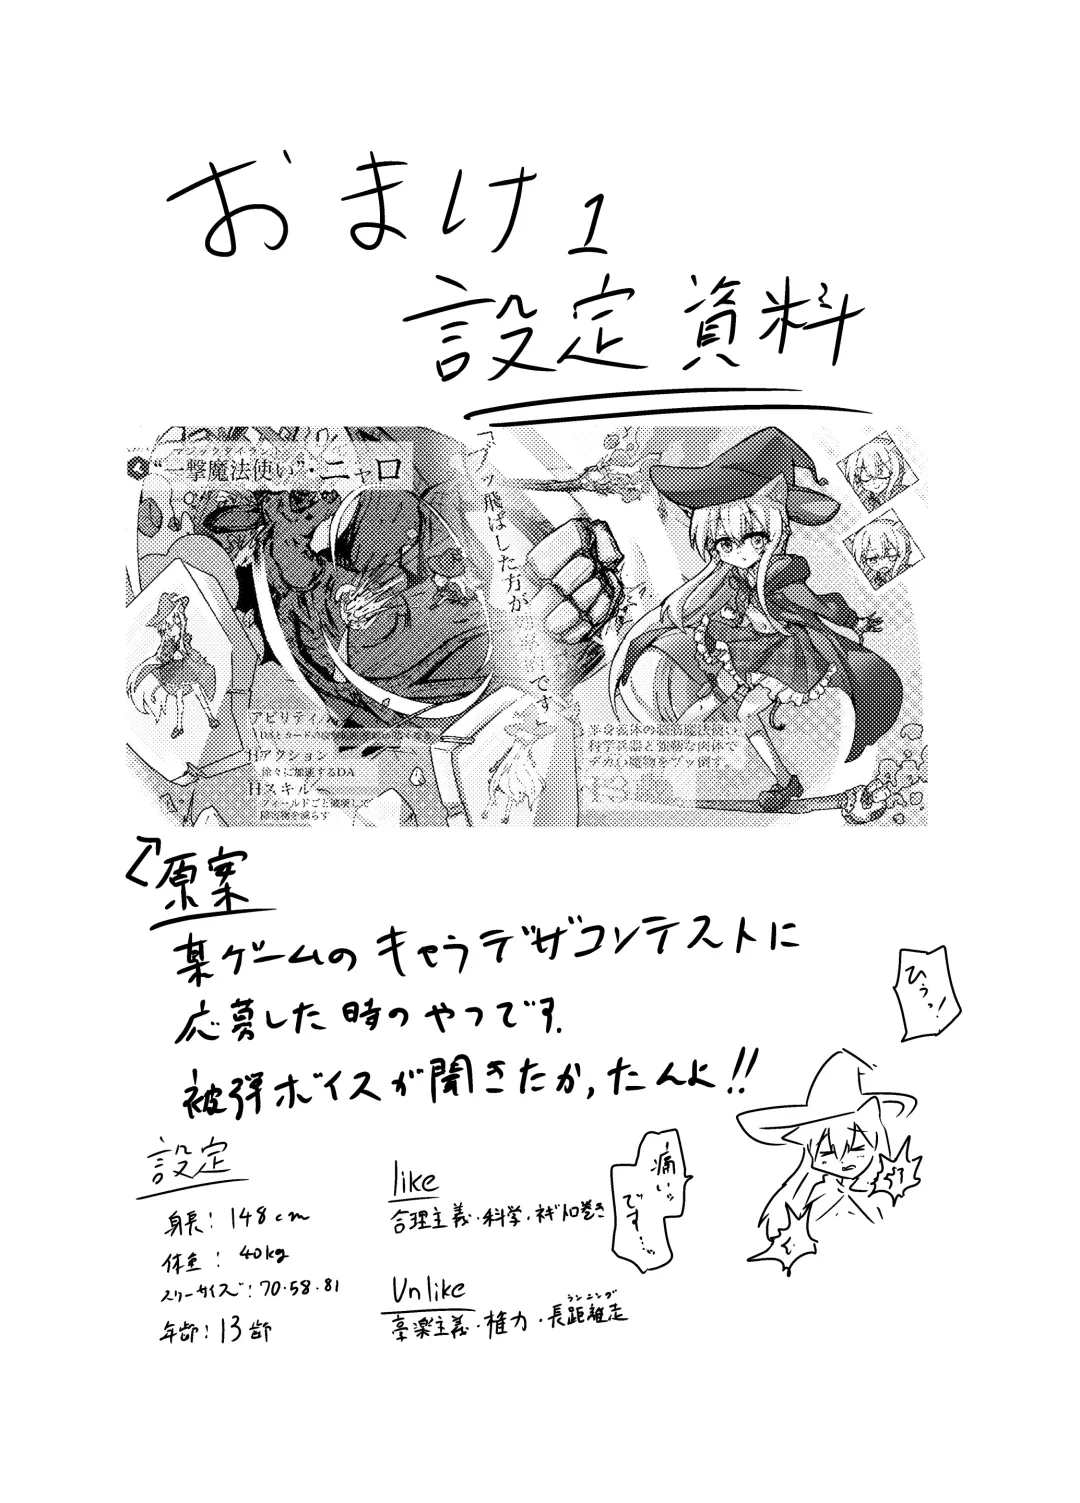 おまけ1
設定資料
マジックタイラント
"一撃魔法使い"・ニャロ
「ブッ飛ばした方が
です」
アビリティ
Hアクション
徐々に加速するDA
Hスキル
フィールドごと破壊して
障害物を減らす
半身義体の最新魔法使い
科学兵器と強靭な肉体で
デカい魔物をブッ倒す。
原案
某ゲームのキャラデザコンテストに
応募した時のやつです.
被弾ボイスが聞きたか,たんよ!!
ひぅっ!
痛いッ
です…
設定
身長: 148cm
体重: 40kg
スリーサイズ: 70・58・81
年齢: 13歳
like
合理主義・科学・ネギトロ巻き
Unlike
享楽主義・権力・長距離走
ランニング